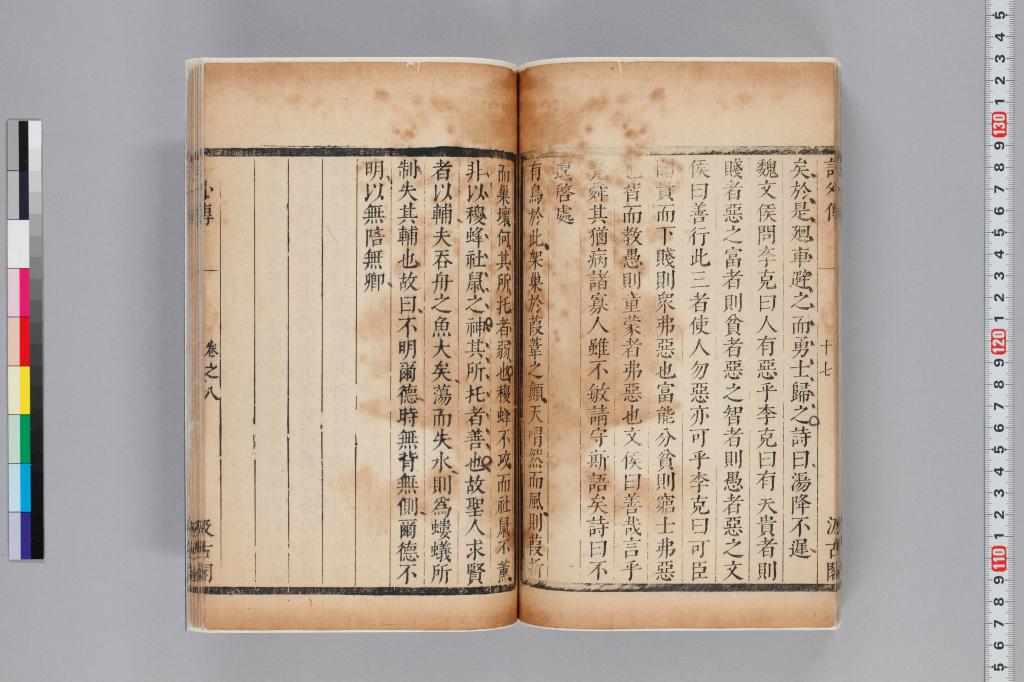 詩外傳
十七
汲古閣
矣於是廻車避之而勇士歸之詩曰湯降不遲
魏文侯問李克曰人有惡乎李克曰有夫貴者則
賤者惡之富者則貧者惡之智者則愚者惡之文
侯曰善行此三者使人勿惡亦可乎李克曰可臣
聞貴而下賤則衆弗惡也富能分貧則窮士弗惡
也智而教愚則童蒙者弗惡也文侯曰善哉言乎
堯舜其猶病諸寡人雖不敏請守斯語矣詩曰不
遑啓處
有鳥於此架巢於葭葦之顛天喟然而風則葭折
而巢壞何其所托者弱也稷蜂不攻而社鼠不薰
非以稷蜂社鼠之神其所托者善也故聖人求賢
者以輔夫吞舟之魚大矣蕩而失水則爲螻蟻所
制失其輔也故曰不明爾德時無背無側爾德不
明以無陪無卿
外傳
卷之八
汲古閣